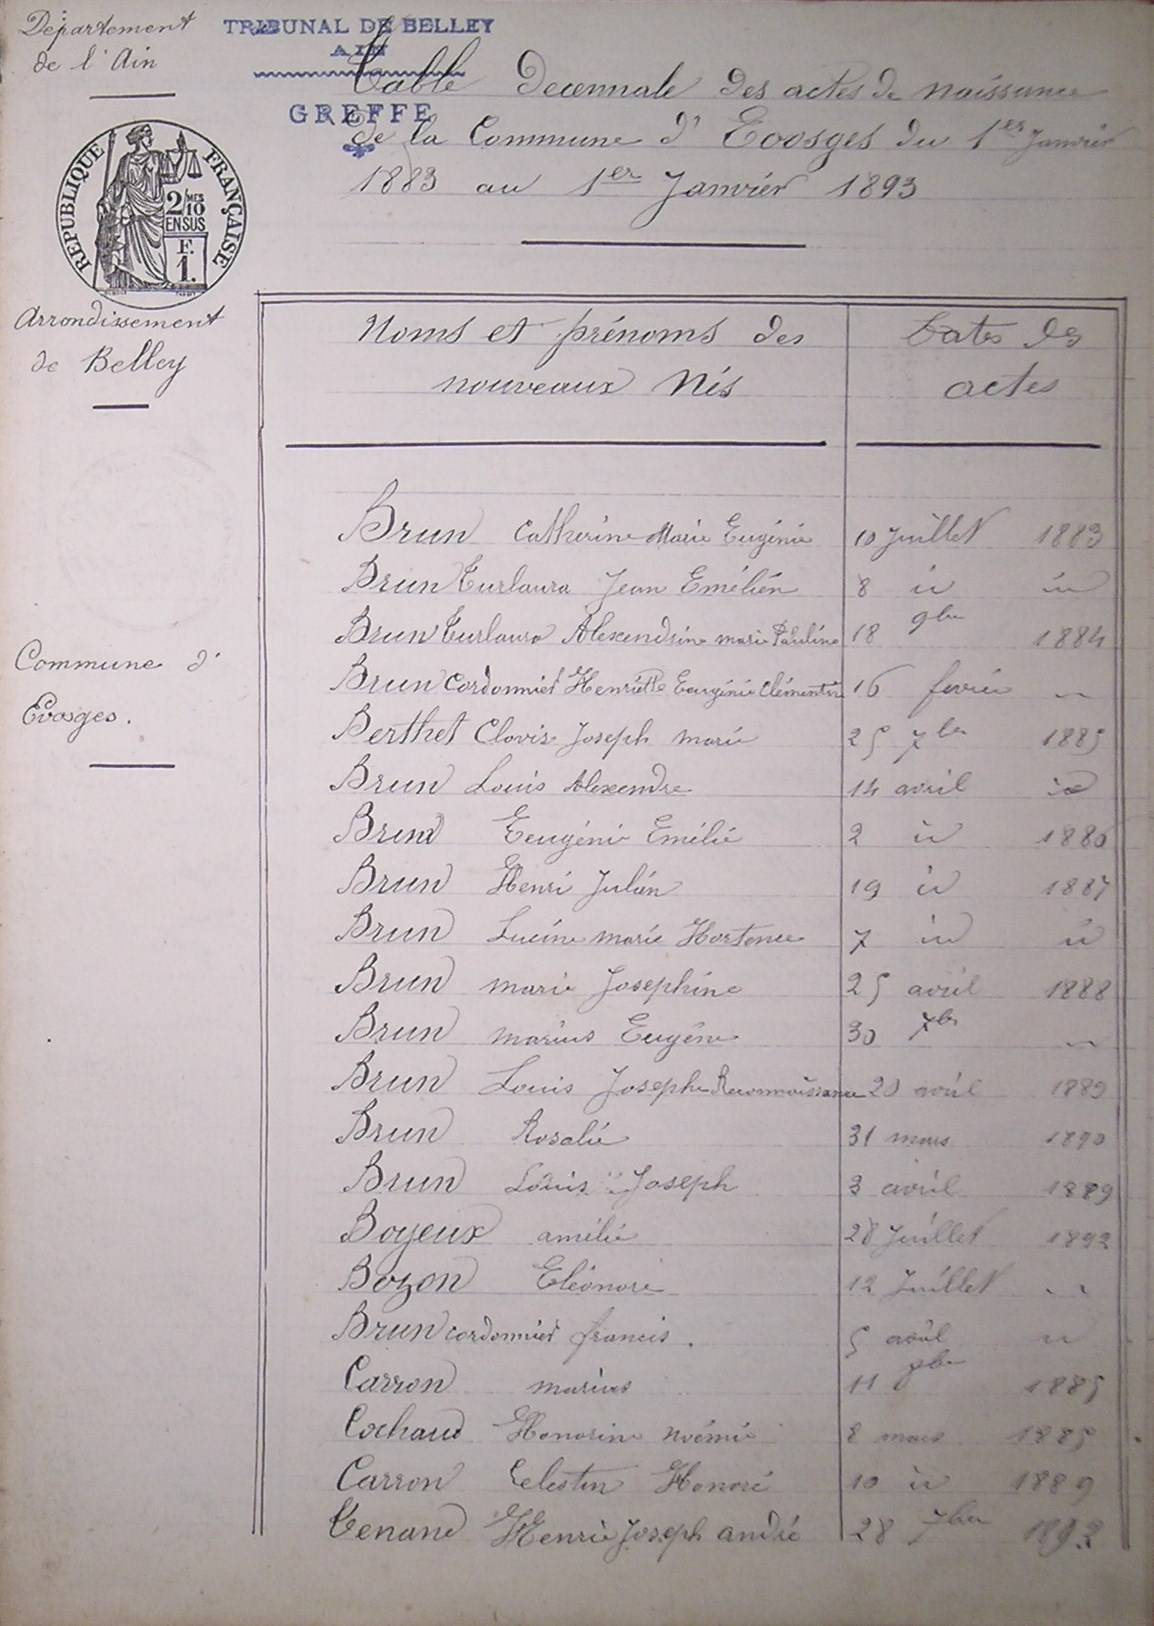 Département
de l'Ain
TRIBUNAL DE BELLEY
AIN
GREFFE
Table Decennale des actes de naissance
de la Commune d'Evosges du 1er Janvier
1883 au 1er Janvier 1893
RÉPUBLIQUE FRANÇAISE
2/10 MES
EN SUS
F.
1.
Arrondissement
de Belley
Commune d'
Evosges.
Noms et prénoms des
nouveaux Nés
Dates des
actes
Brun Catherine Marie Eugénie 10 Juillet 1883
Brun Turlaura Jean Emélién 8 id id
Brun Turlaura Alexendrine marie Pauline 18 9bre 1884
Brun Cordonnier Henriette Eeugénie Clémentin 16 fevrier
Berthet Clovis Joseph marie 25 7bre 1885
Brun Louis Alexendre 14 avril id
Brun Eeugénie Emélie 2 id 1886
Brun Henri Julién 19 id 1887
Brun Lucine marie Hortence 7 id id
Brun marie Josephine 25 avril 1888
Brun marius Eugéne 30 7br
Brun Louis Joseph Reconnaissance 20 avril 1889
Brun Rosalie 31 mars 1890
Brun Louis Joseph 3 avril 1889
Boyeux amélie 28 Juillet 1892
Bozon Eléonore 12 Juillet
Brun cordonnier francis. 5 août
Carron marius 11 1885
Cochaud Honorine noémie 8 mars 1885
Carron Celestin Honoré 10 id 1889
Tenand Henrie Joseph andré 28 7bre 1892